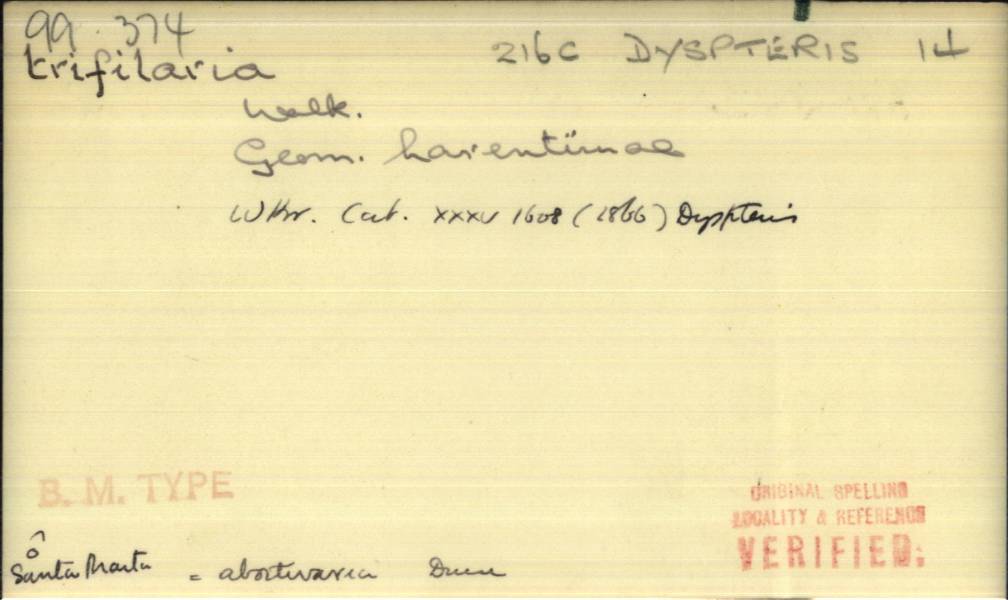 99.374
trifilaria 216C DYSPTERIS 14
Walk.
Geom. larentiinae
Wkr. Cat. XXXV 1608 (1866) Dyspteris
B. M. TYPE
ORIGINAL SPELLING
LOCALITY & REFERENCE
VERIFIED.
Santa Marta = abortivaria Druce